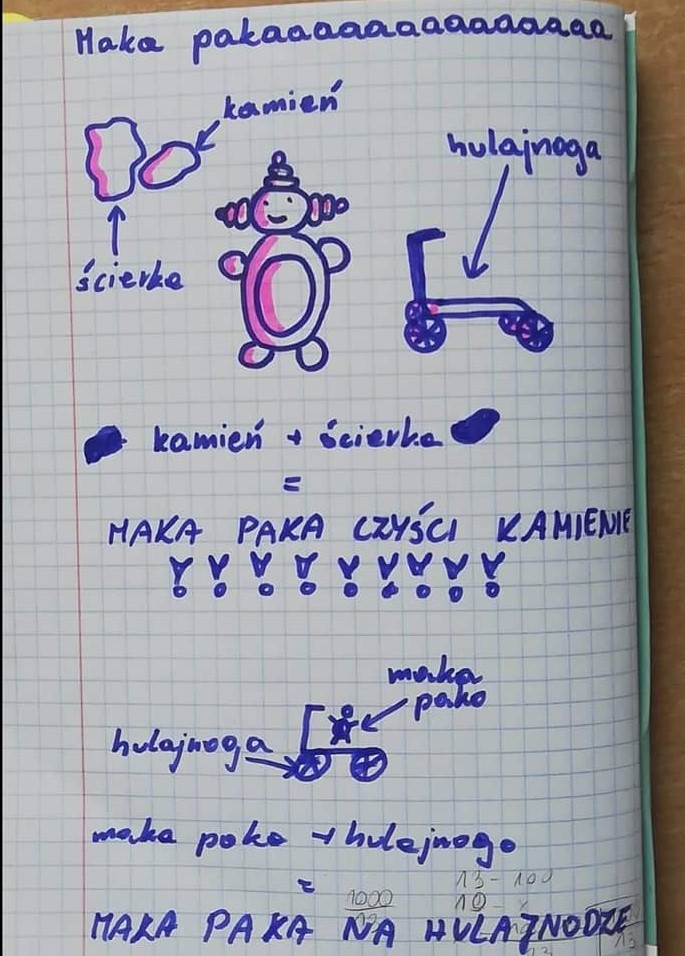 Maka pakaaaaaaaaaaaaaaaa
kamień
hulajnoga
ścierka
kamień + ścierka
=
MAKA PAKA CZYŚCI KAMIENIE
!!!!!!!!!
maka
pako
hulajnoga
maka poko + hulajnogo
=
13 - 100
1000
10 - x
MAKA PAKA NA HULAJNODZE
13